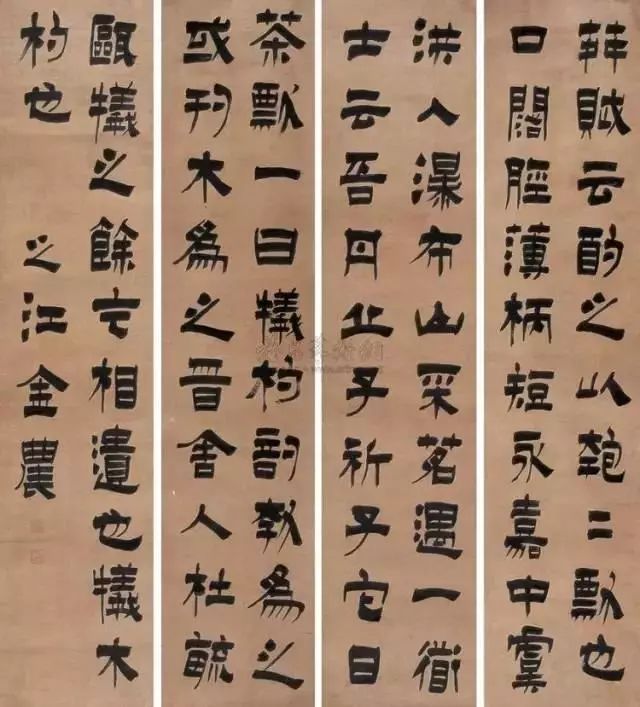 荈賦云酌之以匏二瓢也
口闊脛薄柄短永嘉中虞
洪入瀑布山采茗遇一道
士云吾丹丘子祈子它日
茶瓢一曰犧杓剖瓠為之
或刊木為之晉舍人杜毓
甌犧之餘乞相遺也犧木
杓也 之江金農